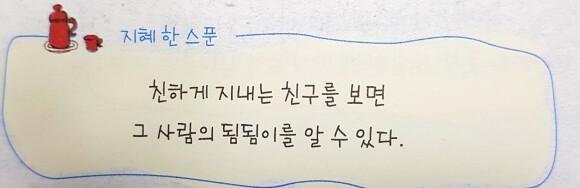 지혜 한 스푼
친하게 지내는 친구를 보면
그 사람의 됨됨이를 알 수 있다.